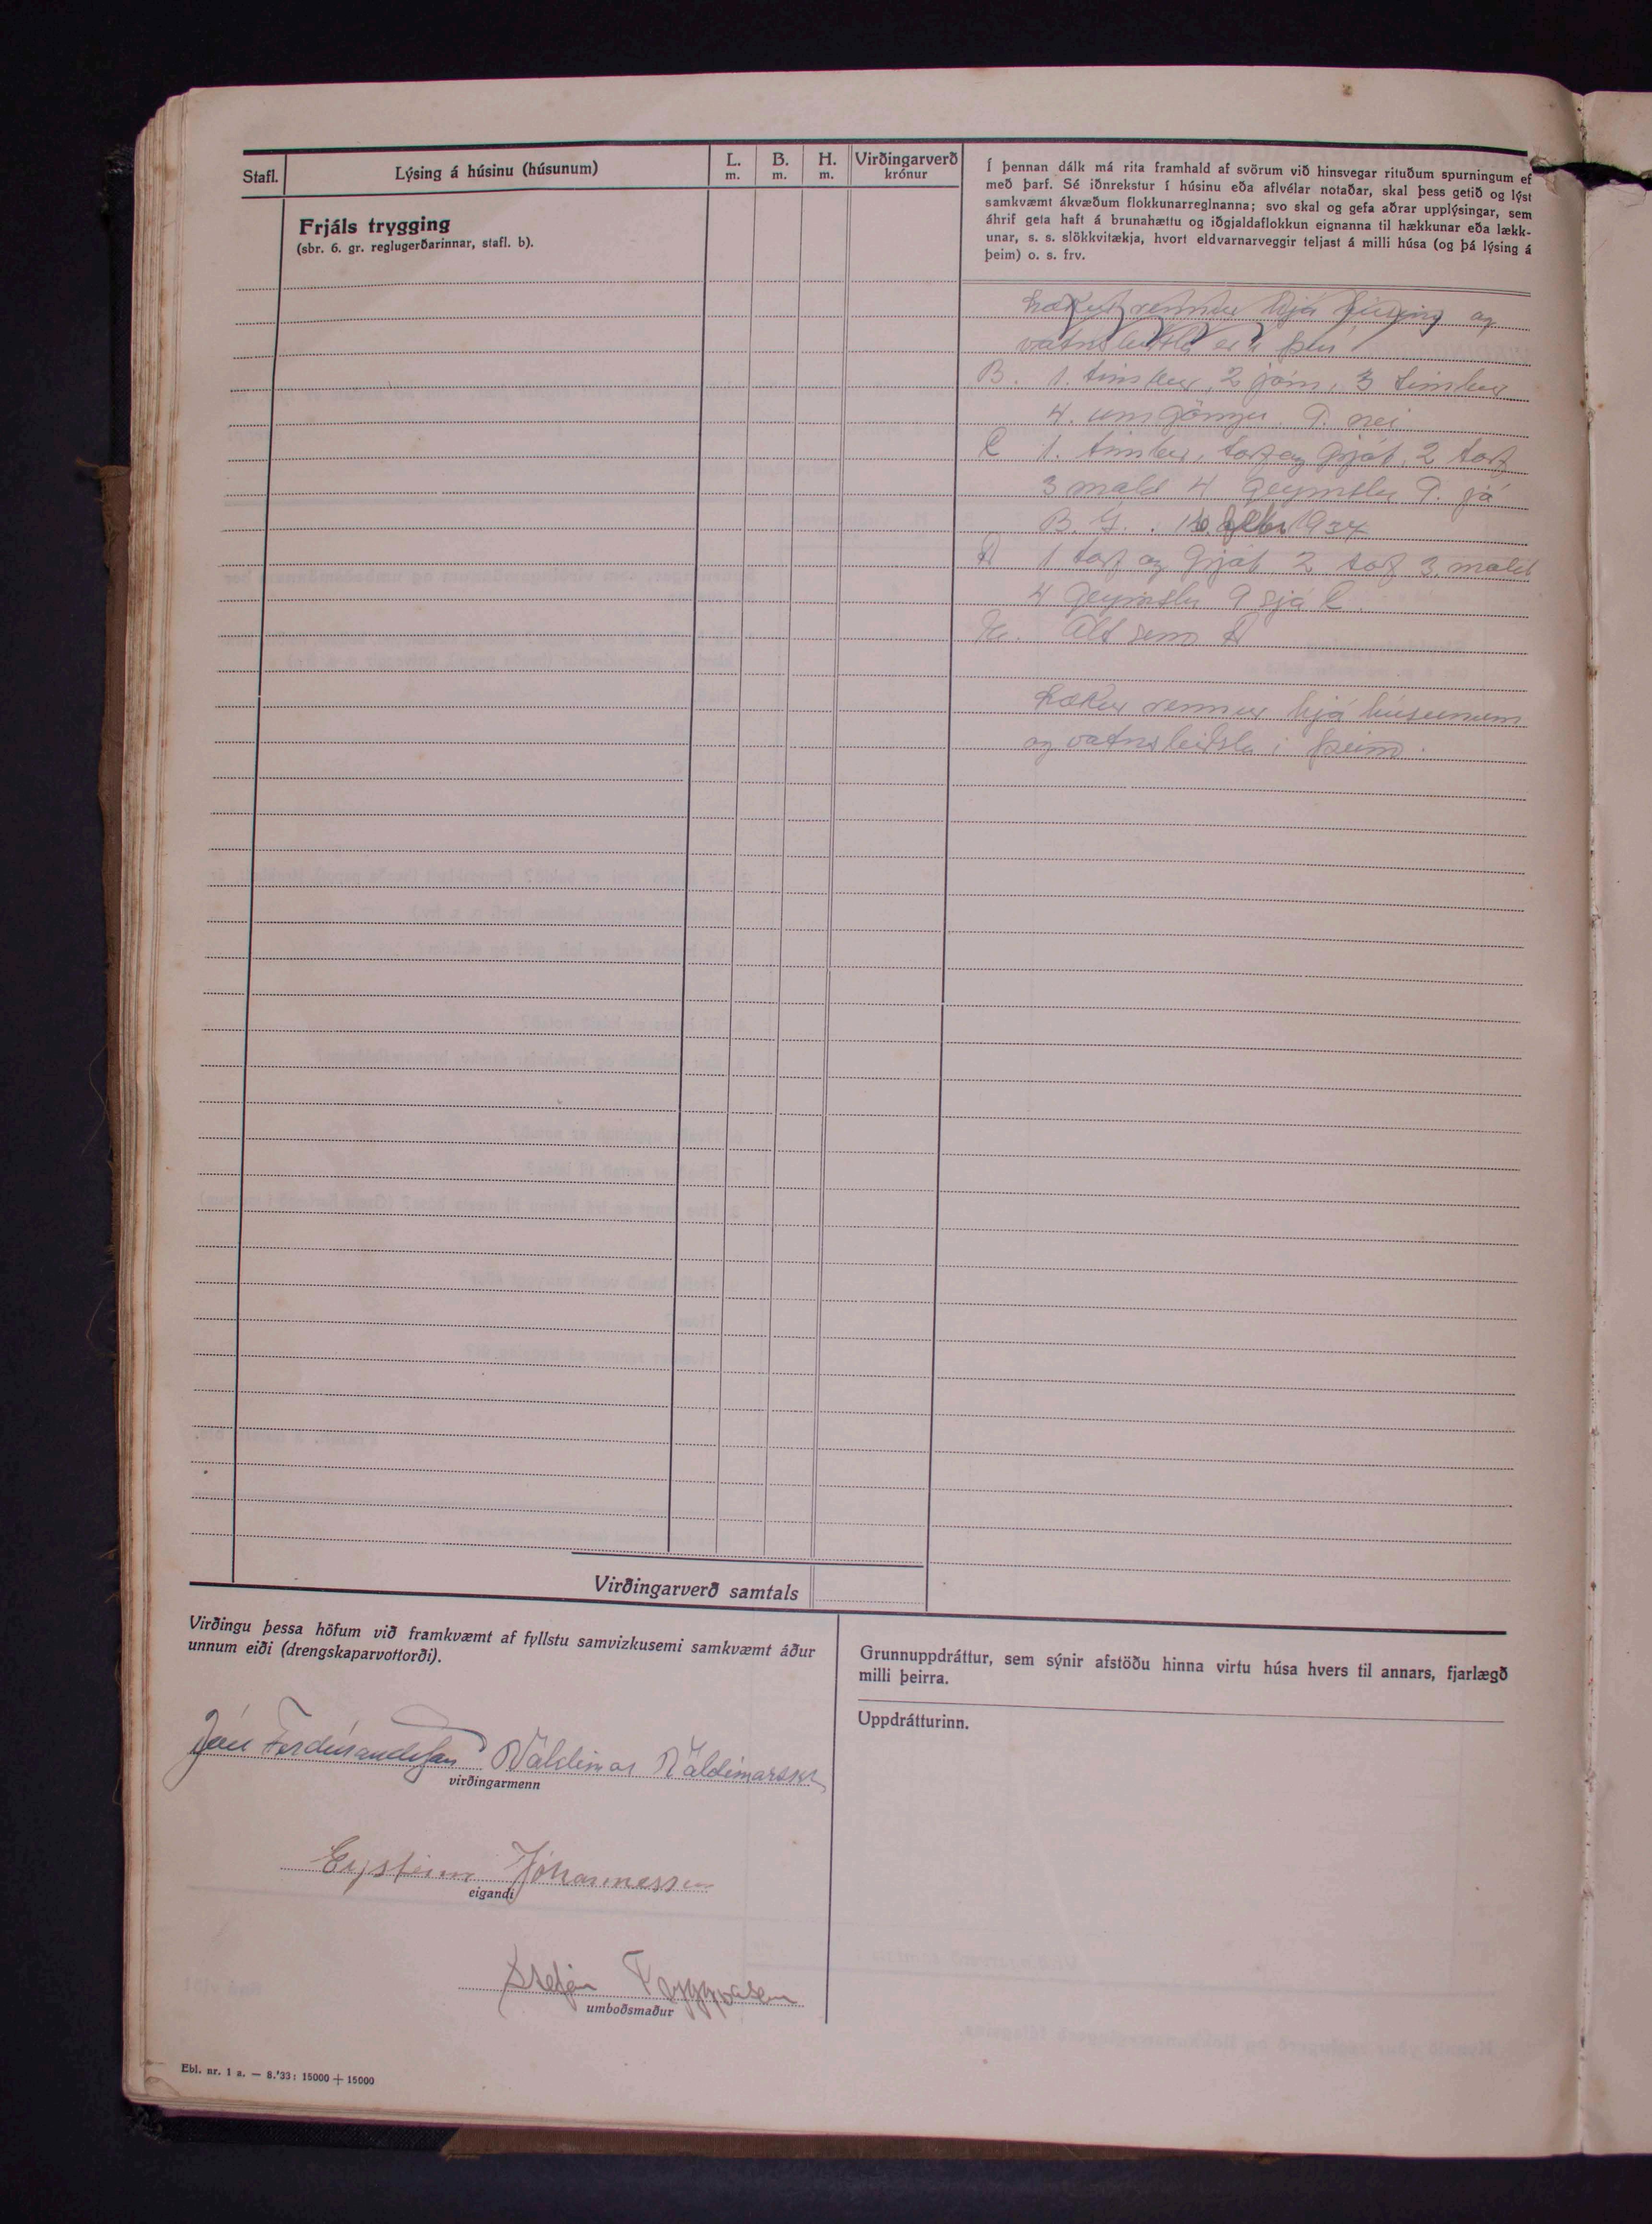 Stafl.
Lýsing á húsinu (húsunum)
L.
m.
B.
m.
H.
m.
Virðingarverð
krónur
Frjáls trygging
(sbr. 6. gr. reglugerðarinnar, stafl. b).
Í þennan dálk má rita framhald af svörum við hinsvegar rituðum spurningum ef
með þarf. Sé iðnrekstur í húsinu eða aflvélar notaðar, skal þess getið og lýst
samkvæmt ákvæðum flokkunarreglnanna; svo skal og gefa aðrar upplýsingar, sem
áhrif geta haft á brunahættu og iðgjaldaflokkun eignanna til hækkunar eða lækk-
unar, s. s. slökkvitækja, hvort eldvarnarveggir teljast á milli húsa (og þá lýsing á
þeim) o. s. frv.
Lækur rennur hjá húsinu og
vatnsleiðsla er í því
B. 1. timbur, 2 járn, 3 timbur
4. umgöngu. 9. nei
C 1. timbur, torf og grjót, 2 torf
3 mold 4 geymsla 9. já
B. G. 16. 1934
D 1 torf og grjót 2 torf 3. mold
4 geymsla 9 sjá C.
E. Alt sem D
Lækur rennur hjá húsunum
og vatnsleiðsla í þeim.
Virðingarverð samtals
Virðingu þessa höfum við framkvæmt af fyllstu samvizkusemi samkvæmt áður
unnum eiði (drengskaparvottorði).
Jón Ferdínandsson Valdimar Valdimarsson
virðingarmenn
Eysteinn Jóhannesson
eigandi
Stefán Tryggvason
umboðsmaður
Grunnuppdráttur, sem sýnir afstöðu hinna virtu húsa hvers til annars, fjarlægð
milli þeirra.
Uppdrátturinn.
Ebl. nr. 1 a. — 8.'33: 15000 + 15000